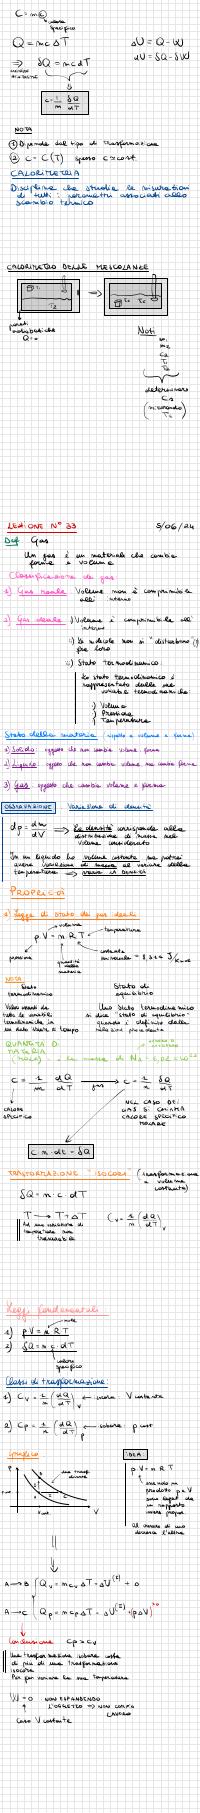 C = m c
calore specifico
Q = m c ΔT
ΔU = Q - W
⇒ δQ = m c dT
dU = δQ - δW
c = 1/m δQ/dT
NOTA
1) Dipende dal tipo di trasformazione
2) c = C(T) spesso c = cost
CALORIMETRIA
Disciplina che studia le misurazioni
di tutti i parametri associati allo
scambio termico
CALORIMETRO DELLE MESCOLANZE
pareti
adiabatiche
Q = 0
Noti
m1
m2
C2
T1
T2
determinare
C1
(misurando
LEZIONE N° 33
5/06/24
Def Gas
Un gas è un materiale che cambia
forma e volume
Classificazione dei gas
1) Gas reale Volume non è comprimibile
all' interno
2) Gas ideale i) Volume è comprimibile all'
interno
ii) Le molecole non si "disturbano"
tra loro
iii) Stato termodinamico
Lo stato termodinamico è
rappresentato dalle tre
variabili termodinamiche
i) Volume
ii) Pressione
iii) Temperatura
Stato della materia (rispetto a volume e forma)
1) Solido: oggetto che non cambia volume e forma
2) Liquido: oggetto che non cambia volume ma cambia forma
3) Gas: oggetto che cambia volume e forma
OSSERVAZIONE Variazione di densità
dρ = dm/dV ⇒ La densità corrisponde alla
distribuzione di massa nel
volume considerato
In un liquido ho volume costante ma potrei
avere variazione di massa al variare della
temperatura ⇒ varia la densità
PROPRIETÀ
1) Legge di stato dei gas ideali
volume
temperatura
p V = n R T
pressione
quantità
della
materia
costante
universale = 8,314 J/K·mol
NOTA
Stato
termodinamico
Stato di
equilibrio
Valori assunti da
tutte le variabili
termodinamiche in
un dato istante di tempo
Uno Stato termodinamico
si dice "stato di equilibrio"
quando è definito dalle
QUANTITÀ DI
MATERIA
(mole)
C = 1/m dQ/dT
gas
C = 1/n δQ/dT
CALORE
SPECIFICO
NEL CASO DEI
GAS SI CHIAMA
CALORE SPECIFICO
MOLARE
C n · dt = δQ
TRASFORMAZIONE ISOCORA (trasformazione
a volume
costante)
δQ = n c dT
T → T + ΔT
Cv = 1/n (dQ/dT)v
Leggi fondamentali
mole
1) pV = n R T
2) δQ = n c dT
calore
specifico
Classi di trasformazione:
1) Cv = 1/n (dQ/dT)v ← isocora: V costante
2) Cp = 1/n (dQ/dT)p ← isobara: p cost
Grafico
IDEA:
P
V
p V = n R T
essendo un
prodotto p e V
sono legati da
un rapporto
inverso
Al crescere di uno
decresce l'altro
A → B { Qv = n cv ΔT = ΔU + 0
A → C { Qp = n cp ΔT = ΔU + (pΔV)
Conclusione Cp > Cv
Una trasformazione isobara costa
di più di una trasformazione
isocora
Per far variare la sua temperatura
W = 0 : NON ESPANDENDO
L'OGGETTO ⇒ NON COMPIE
LAVORO
Caso V costante